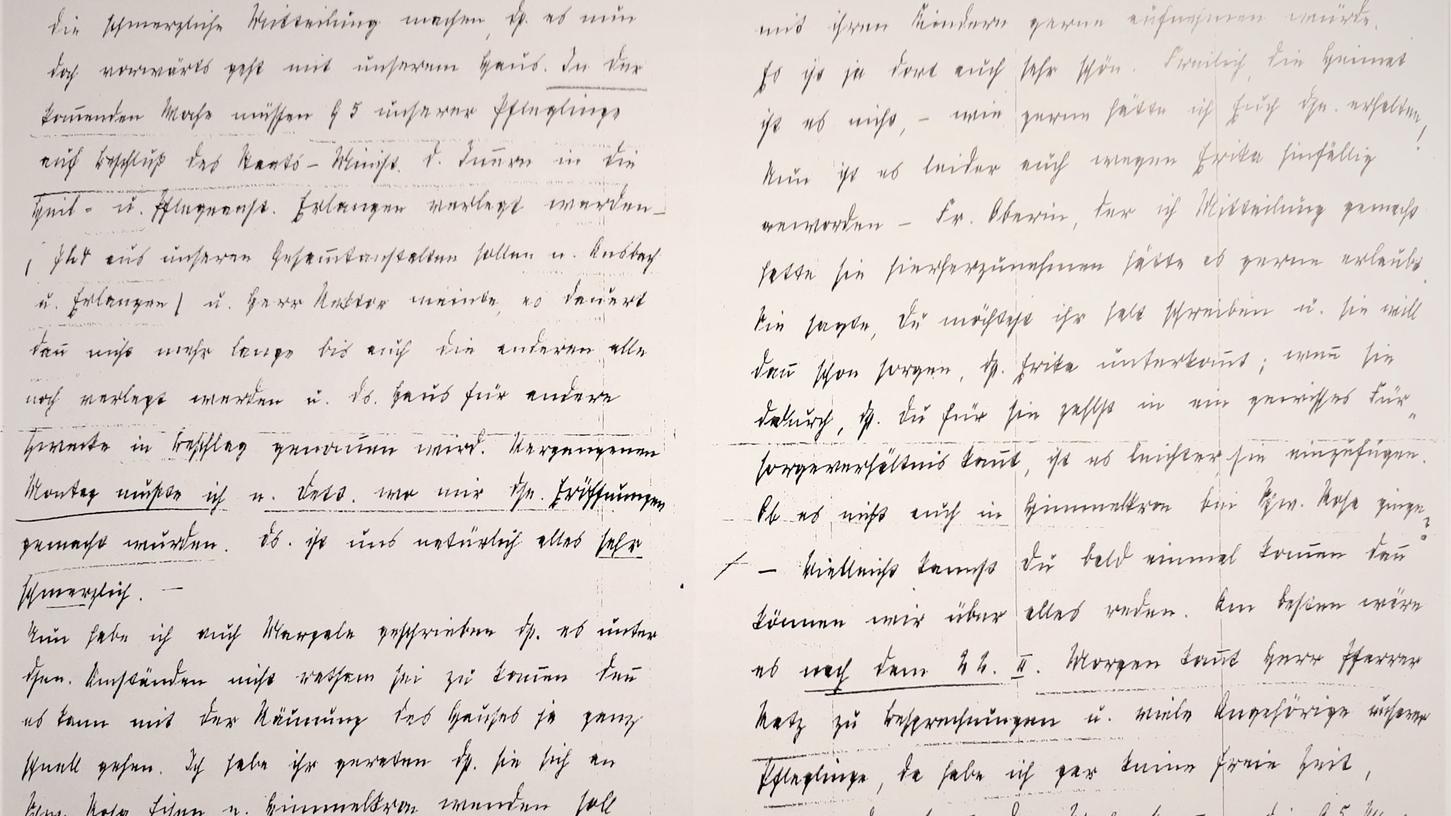 die schmerzliche Mitteilung machen, dß. es nun
doch vorwärts geht mit unserem Haus. In der
kom̅enden Woche müssen 95 unserer Pfleglinge
auf Beschluß des Staats-Minist. d. Innern in die
Heil- u. Pflegeanst. Erlangen verlegt werden
aus unseren Gesam̅tanstalten sollen n. Ansbach
u. Erlangen) u. Herr Rektor meinte, es dauert
dan̅ nicht mehr lange bis auch die anderen alle
noch verlegt werden u. ds. Haus für andere
Zwecke in Beschlag genom̅en wird. Vergangenen
Montag mußte ich n. Dett. wo mir dse. Eröffnungen
gemacht wurden. Ds. ist uns natürlich alles sehr
schmerzlich. —
Nun habe ich auch geschrieben dß. es unter
dsen. Umständen nicht ratsam sei zu kom̅en den̅
es kann mit der Räumung des Hauses ja ganz
schnell gehen. Ich habe ihr geraten dß. sie sich an
Schw. Rosa n. Himmelkron wenden soll
mit ihren Kindern gerne aufnehmen würde.
Es ist ja dort auch sehr schön. Freilich, die Heimat
ist es nicht, – wie gerne hätte ich Euch dse. erhalten!
Nun ist es leider auch wegen Erika hinfällig
geworden – Fr. Oberin, der ich Mitteilung gemacht
hatte sie hierherzunehmen hätte es gerne erlaubt.
Sie sagte, Du möchtest ihr halt schreiben u. sie will
dan̅ schon sorgen, dß. Erika unterkom̅t; wen̅ sie
dadurch, dß. Du für sie zahlst in ein gewisses Für-
sorgeverhältnis kom̅t, ist es leichter sie einzufügen.
Ob es nicht auch in Himmelkron bei Schw. Rosa ginge?
– Vielleicht kannst Du bald einmal kom̅en dan̅
können wir über alles reden. Am besten wäre
es nach dem 22. II. Morgen kom̅t Herr Pfarrer
Ratz zu Besprechnungen u. viele Angehörige unserer
Pfleglinge, da habe ich gar keine freie Zeit,